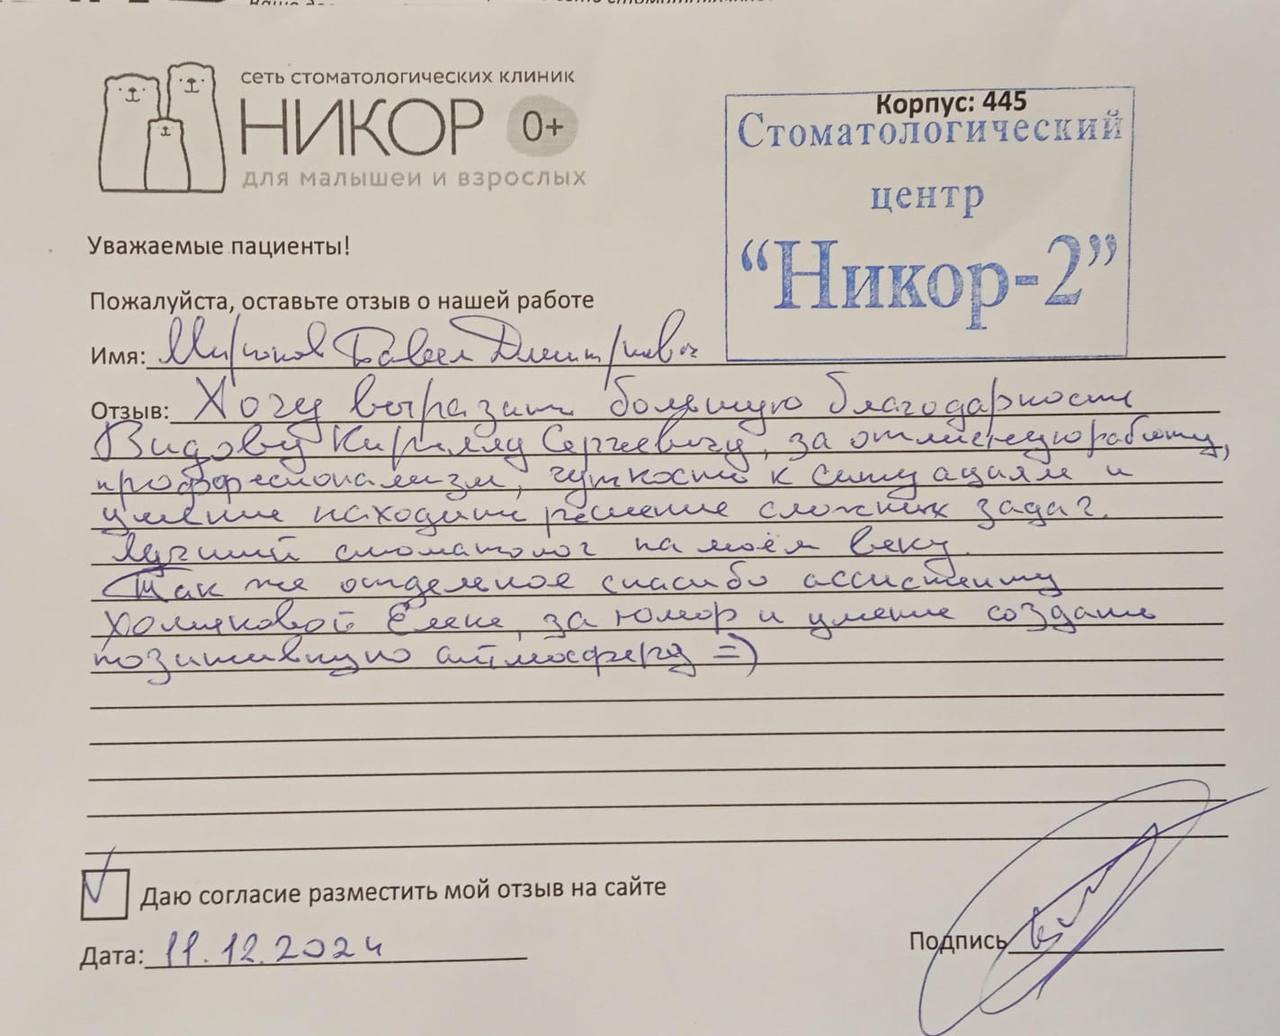 сеть стоматологических клиник
НИКОР 0+
для малышей и взрослых
Корпус: 445
Стоматологический
центр
“Никор-2”
Уважаемые пациенты!
Пожалуйста, оставьте отзыв о нашей работе
Имя: Миронов Павел Дмитриевич
Отзыв: Хочу выразить большую благодарность
Видову Кириллу Сергеевичу, за отличную работу,
профессионализм, чуткость к ситуациям и
умение находить решение сложных задач.
Лучший стоматолог на моём веку.
Так же отдельное спасибо ассистенту
Холиковой Елене, за юмор и умение создать
позитивную атмосферу =)
Даю согласие разместить мой отзыв на сайте
Дата: 11.12.2024
Подпись